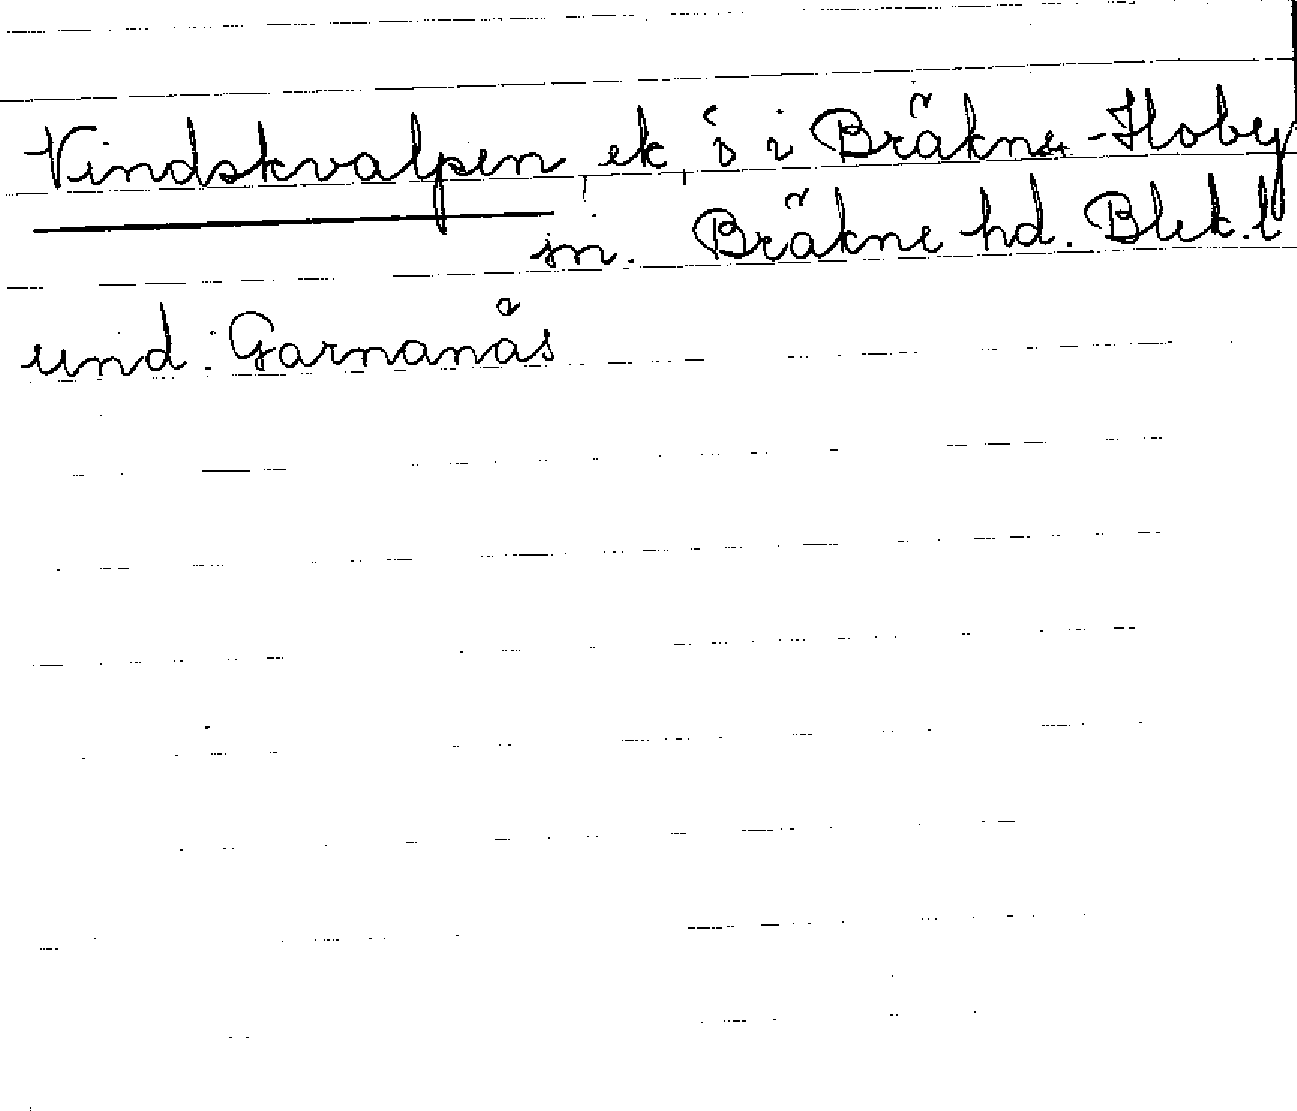 Vindskvalpen, ek, ö i Bräkne-Hoby
sn. Bräkne hd. Blek. l
und. Garnanäs